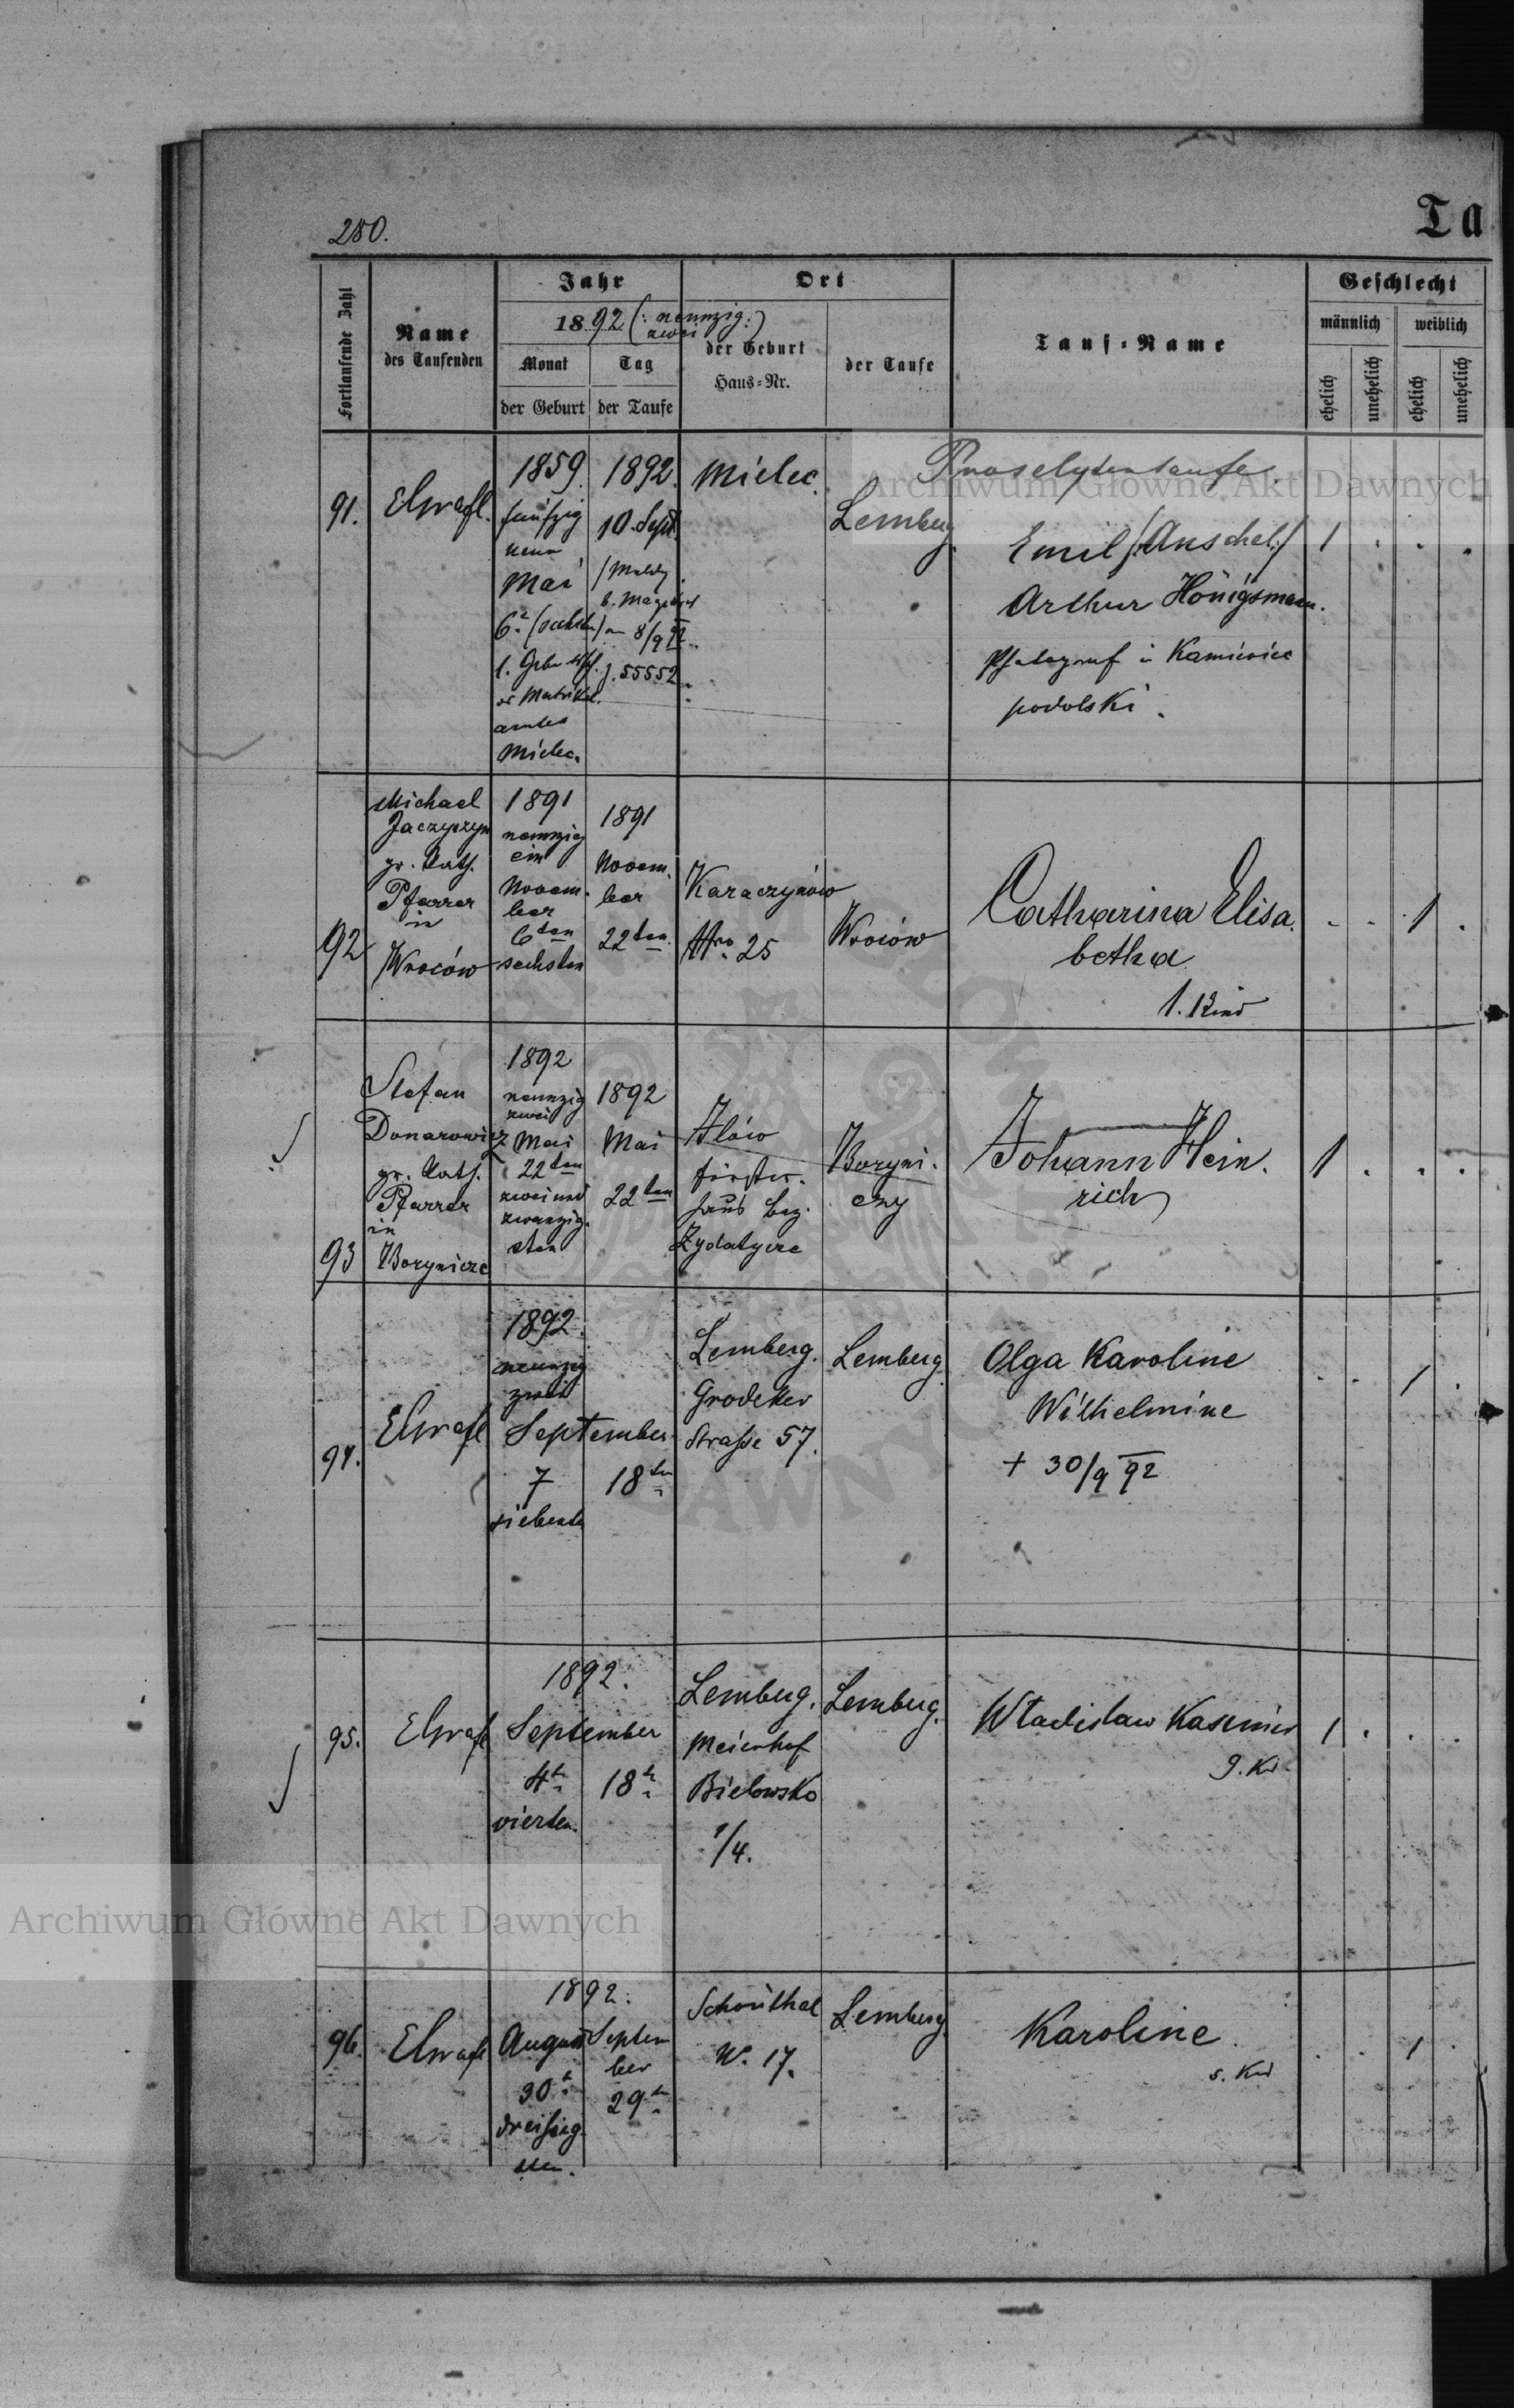 280.
Ta
Fortlaufende Zahl
Name
des Taufenden
Jahr
1892 (: neunzig
zwei :)
Monat
Tag
der Geburt
der Taufe
Ort
der Geburt
Haus-Nr.
der Taufe
Tauf-Name
Geschlecht
männlich
weiblich
ehelich
unehelich
ehelich
unehelich
91.
1859.
fünfzig
neun
Mai
6.
Matrikel
amtes
Mielec.
1892.
10. Sept.
8/9 92
J. 55552
Mielec.
Lemberg.
Proselytentaufe.
Emil /:Anschel:/
Arthur Hönigsmann.
Photograf in Kamieniec
podolski.
1 . . .
92
Michael
Jaczyszyn
gr. Kath.
Pfarrer
in
Wroców
1891
neunzig
ein
Novem.
ber
6ten
sechsten
1891
Novem.
ber
22ten
Karaczynów
Nro. 25
Wroców
Catharina Elisa.
betha
1. Kind
. . 1 .
93
Stefan
Donarowicz
gr. Kath.
Pfarrer
in
Borynicze
1892
neunzig
zwei
Mai
22ten
zwei und
zwanzig.
sten
1892
Mai
22ten
Iłów
Förster.
haus Bez.
Zydatycze
Boryni.
czy
Johann Hein.
rich
1 . . .
94.
1892.
neunzig
zwei
September
7
siebente
18ten
Lemberg.
Grodeker
Straße 57.
Lemberg.
Olga Karoline
Wilhelmine
+ 30/9 92
. . 1 .
95.
1892.
September
4t.
vierten.
18t.
Lemberg.
Meierhof
Bielowsko
1/4.
Lemberg.
Wladislaw Kasimir
9. Kd.
1 . . .
96.
1892.
August
30t.
dreißig
sten.
Septem
ber
29t.
Schönthal
N. 17.
Lemberg.
Karoline
5. Kd
. . 1 .
Archiwum Główne Akt Dawnych
Archiwum Główne Akt Dawnych